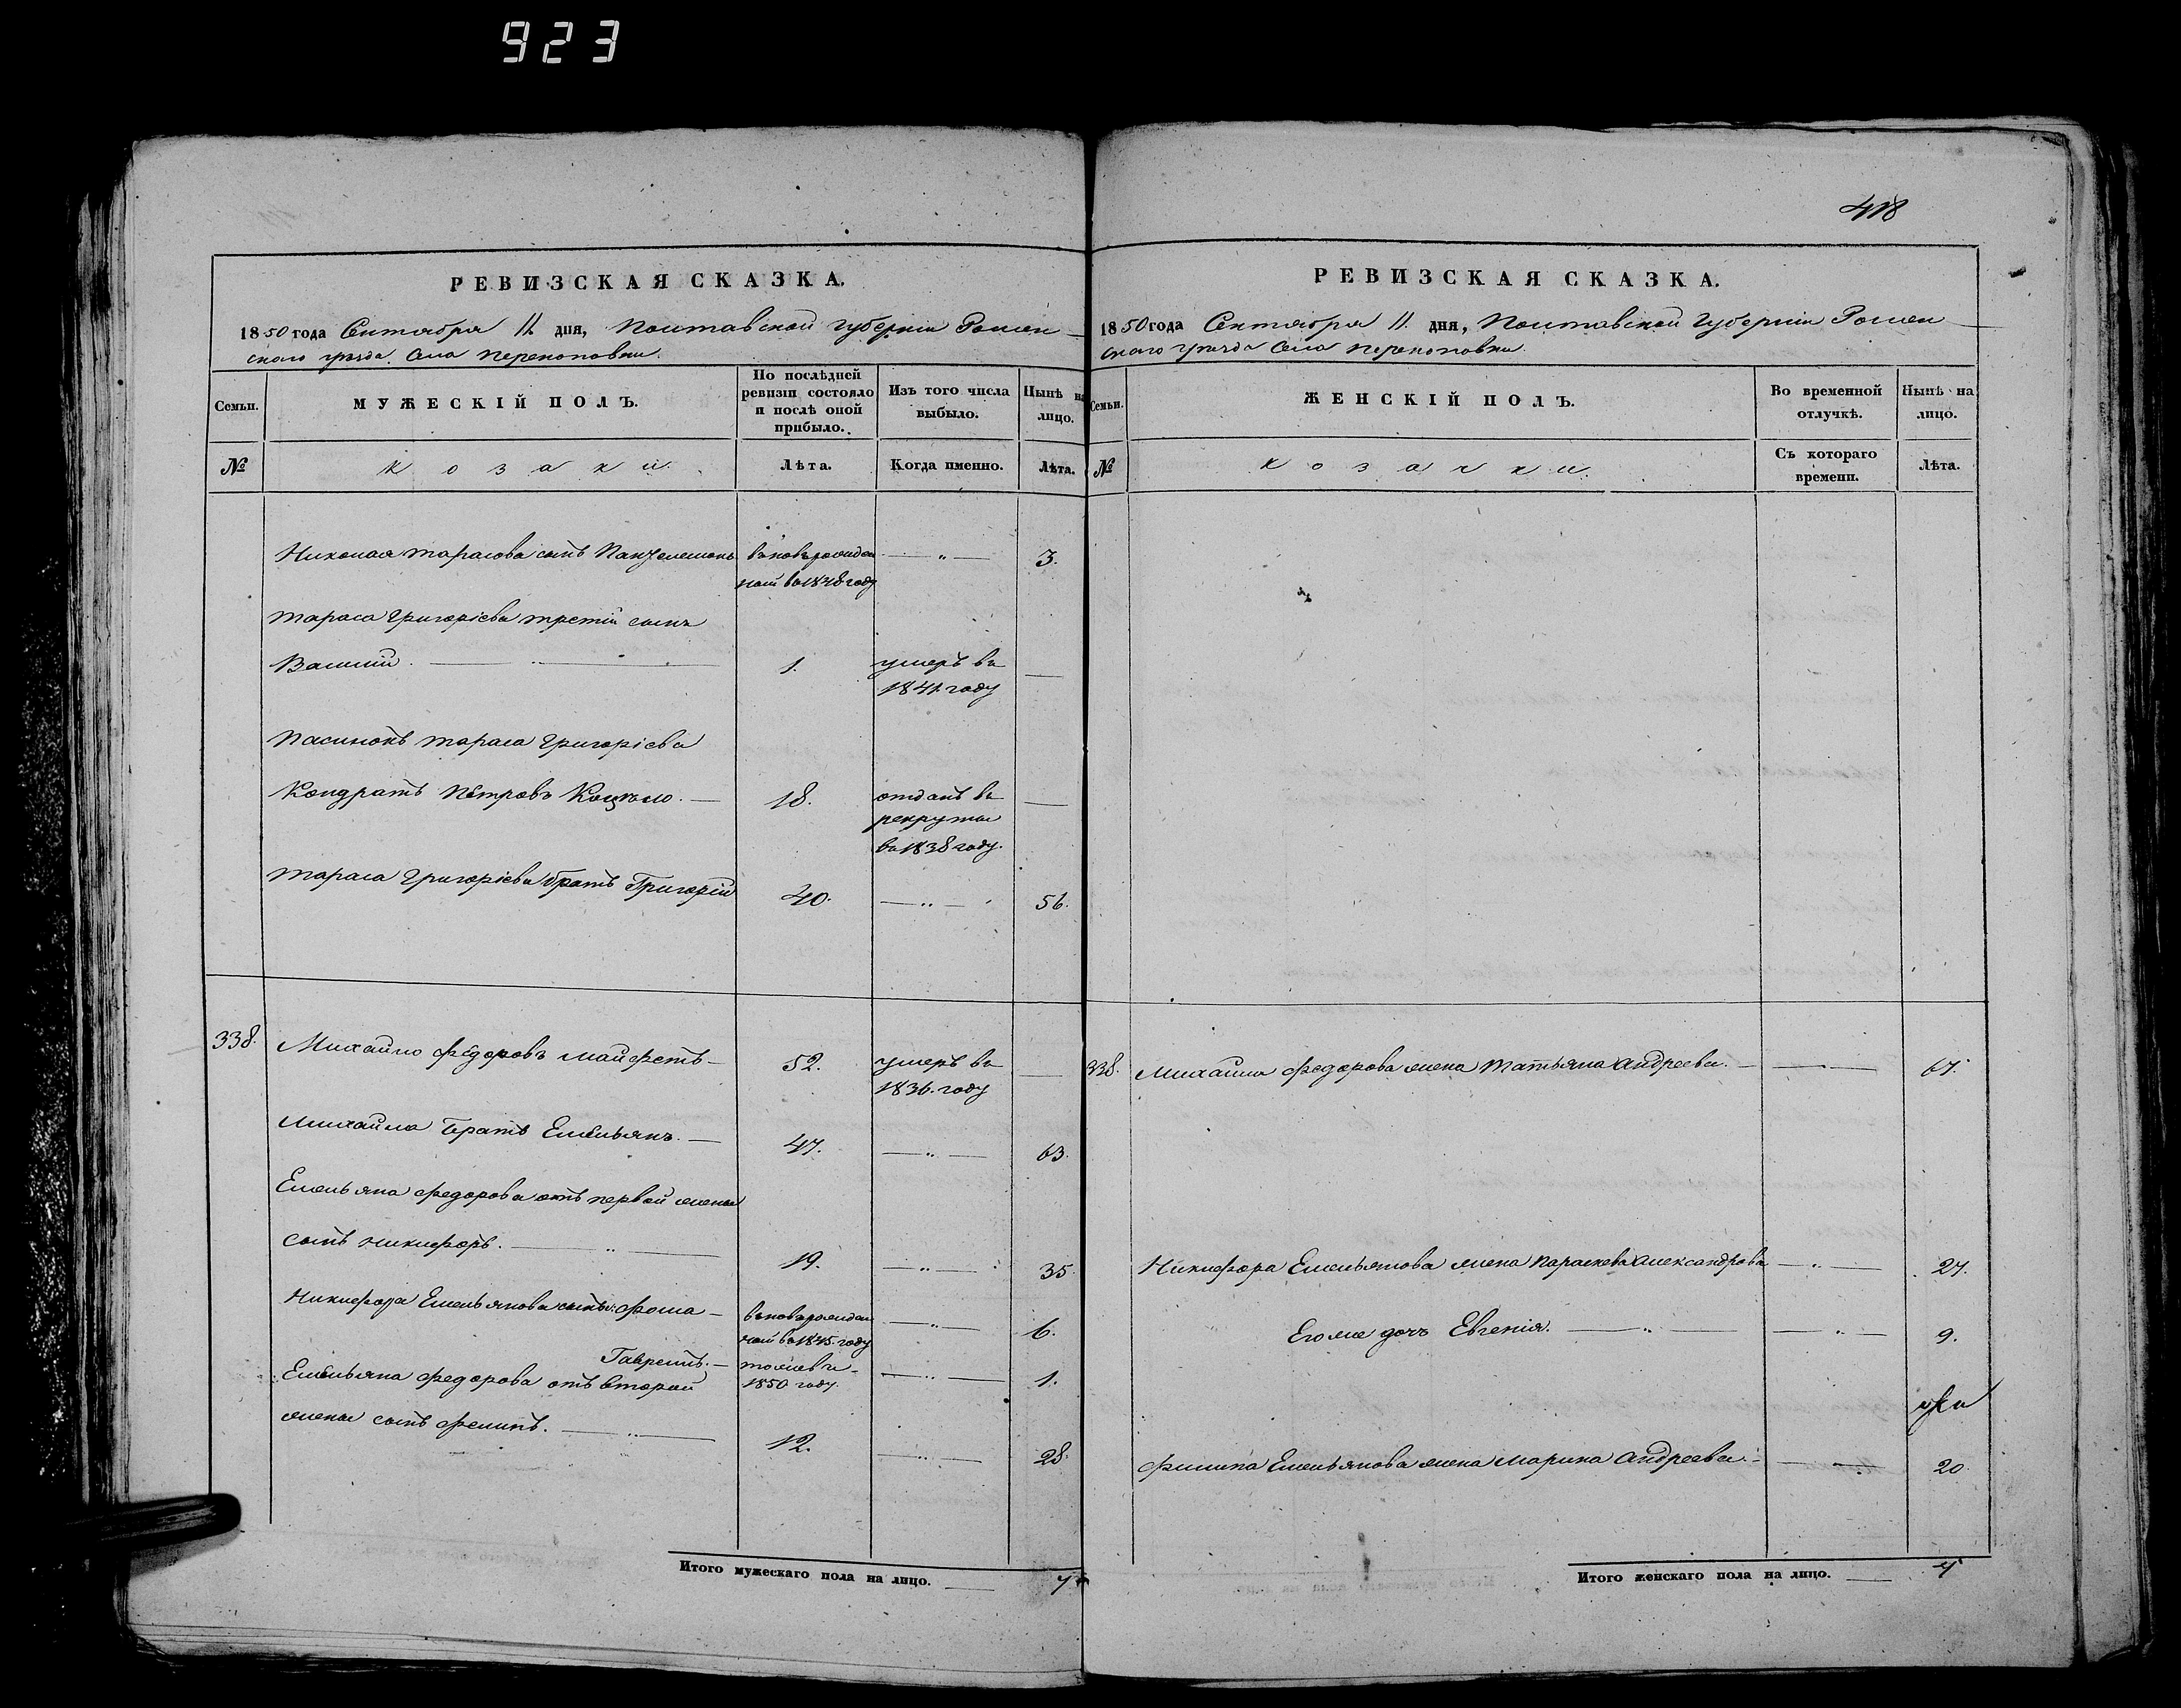 923
418
РЕВИЗСКАЯ СКАЗКА.
1850 года Сентября 11 дня, Полтавской Губерніи Ромен
скаго уезда Села Перекоповки.
Семьи.
МУЖЕСКІЙ ПОЛЪ.
По послѣдней ревизіи состояло и послѣ оной прибыло.
Изъ того числа выбыло.
Нынѣ на лицо.
№
Козаки.
Лѣта.
Когда именно.
Лѣта.
Николая Тарасова сынъ Пантелемонъ
въ новорожден
3.
ной въ 1848 году
Тараса Григоріева третій сынъ
Василій.
1.
умеръ въ
1841 году
Пасинокъ Тараса Григоріева
Кондратъ Петровъ
18.
отданъ въ
рекруты
въ 1838 году.
Тараса Григоріева братъ Григорій
40.
56.
338.
Михайло Федоровъ Майфетъ
52.
умеръ въ
1836. году
Михайла братъ Емельянъ.
47.
63.
Емельяна Федорова отъ первой жены
сынъ Никифоръ.
19.
35.
Никифора Емельянова сынъ: Фома
въ новорожден
6.
ной въ 1845. году
Гаврентъ.
тоже въ
1.
Емельяна Федорова отъ второй
1850 году.
жены сынъ Филипъ.
12.
28.
Итого мужескаго пола на лицо.
7
РЕВИЗСКАЯ СКАЗКА.
1850 года Сентября 11. дня, Полтавской Губерніи Ромен
скаго уезда Села Перекоповки.
Семьи.
ЖЕНСКІЙ ПОЛЪ.
Во временной отлучкѣ.
Нынѣ на лицо.
№
Козачки.
Съ котораго времени.
Лѣта.
338.
Михайла Федорова жена Татьяна Андреева.
67.
Никифора Емельянова жена Параскева Александрова
27.
Его же дочь Евгенія.
9.
Филипа Емельянова жена Марина Андреева.
20.
Итого женскаго пола на лицо.
4